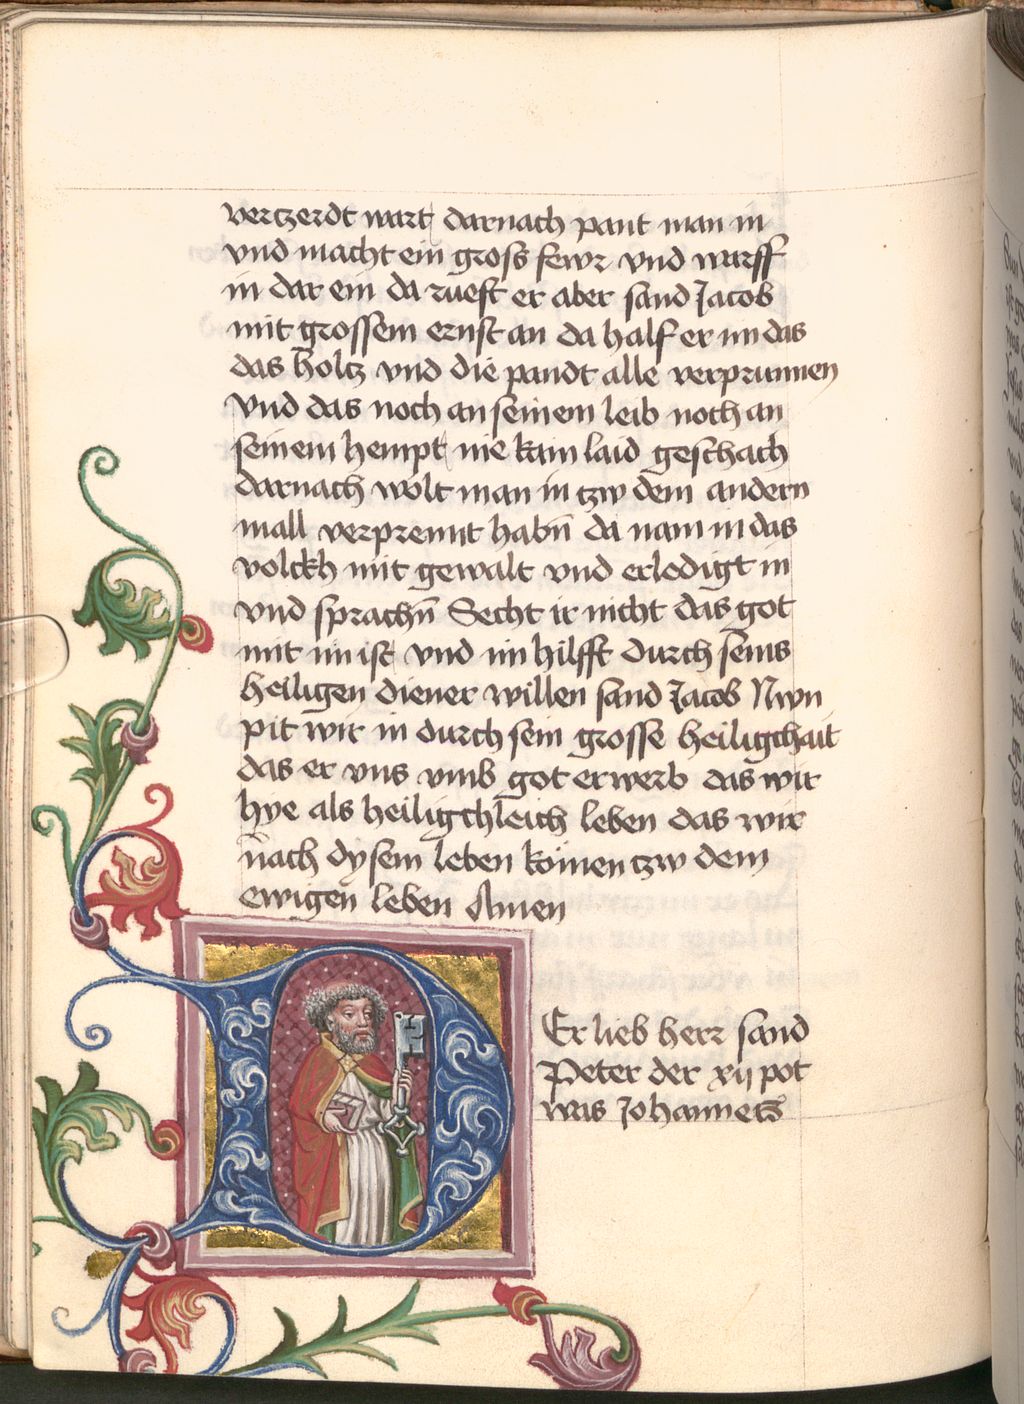 vertzerdt wart darnach pant man in
vnd macht ein gross fewr vnd warff
in dar ein da rueft er aber sand Jacob
mit grossem ernst an da half er im das
das holtz vnd die pandt alle verprunnen
Vnd das noch an seinem leib noch an
seinem hempt nie kain laid geschach
darnach wolt man in tzw dem andern
mall verprennt habn̄ da nam in das
volckh mit gewalt vnd erledigt in
vnd sprachn̄ Secht ir nicht das got
mit im ist vnd im hilfft durch seins
heiligen diener willen sand Jacob Nwn
pit wir in durch sein grosse heiligchait
das er vns vmb got erwerb das wir
hye als heiligchleich leben das wir
nach dysem leben kömen tzw dem
ewigen leben Amen
D
Er lieb herr sand
Peter der xij pot
was Johannets